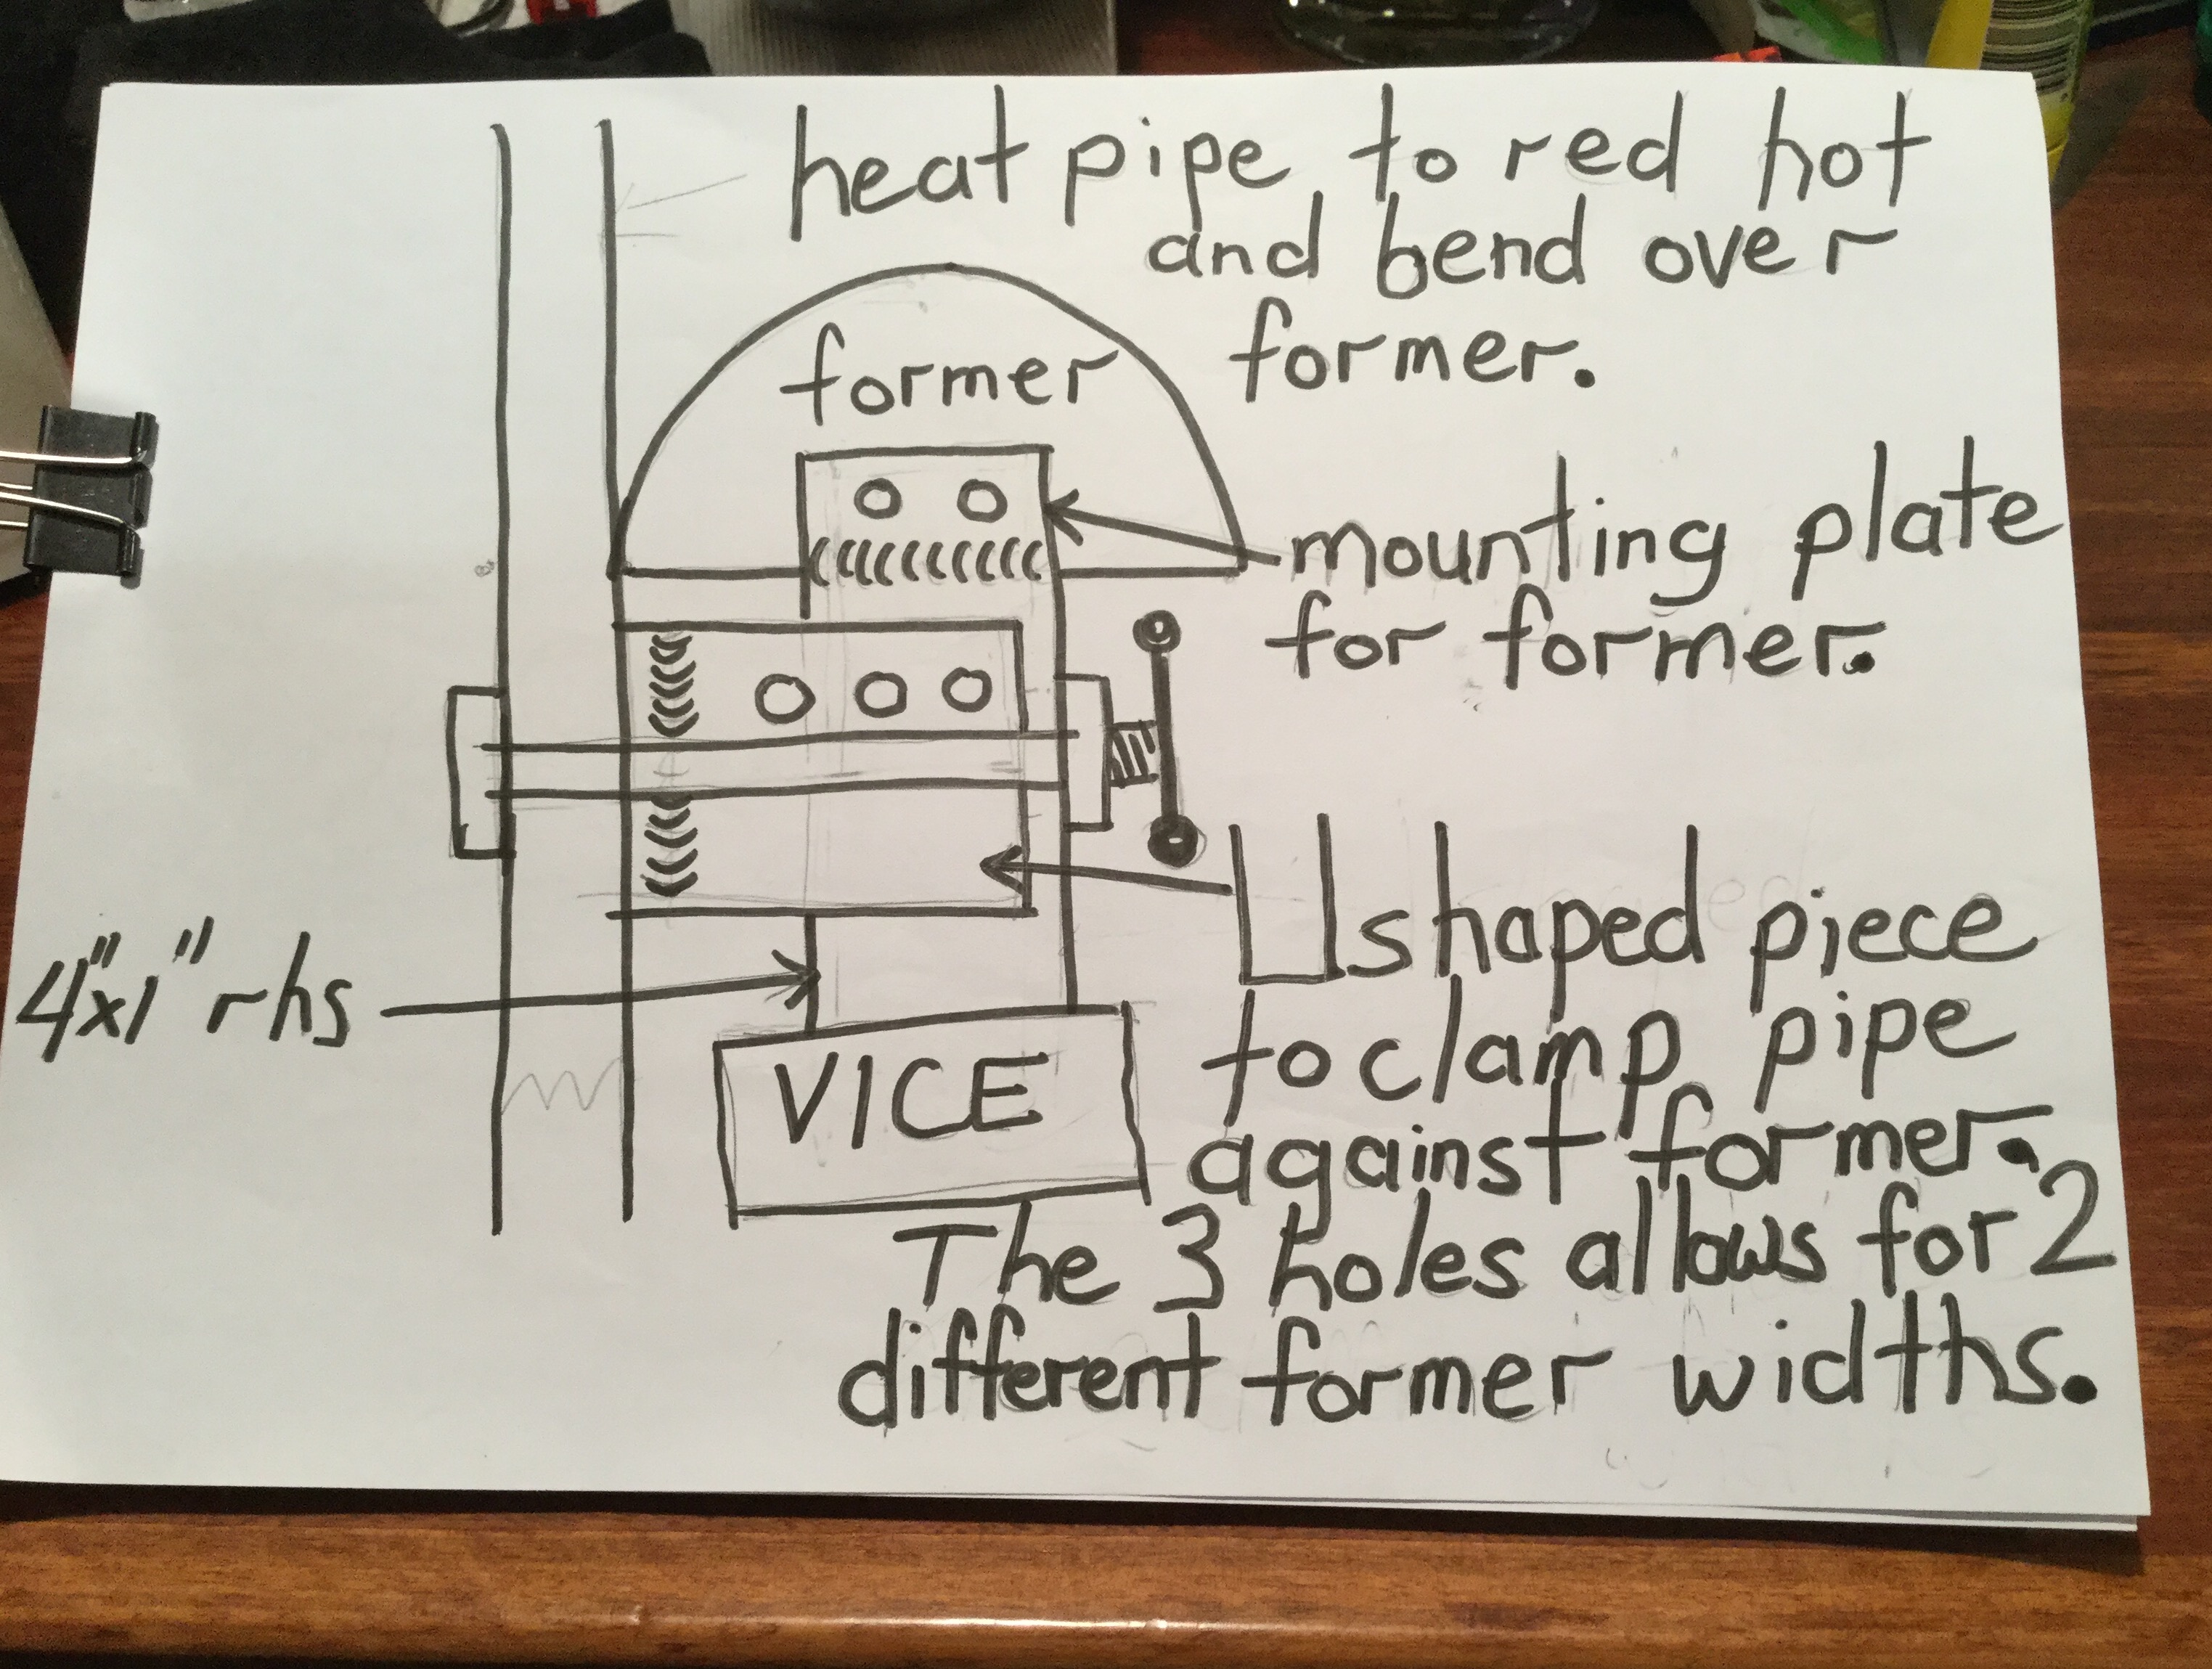 heat pipe to red hot
and bend over
former.
former
mounting plate
for former.
U shaped piece
to clamp pipe
against former.
The 3 holes allows for 2
different former widths.
4"x1" rhs
VICE